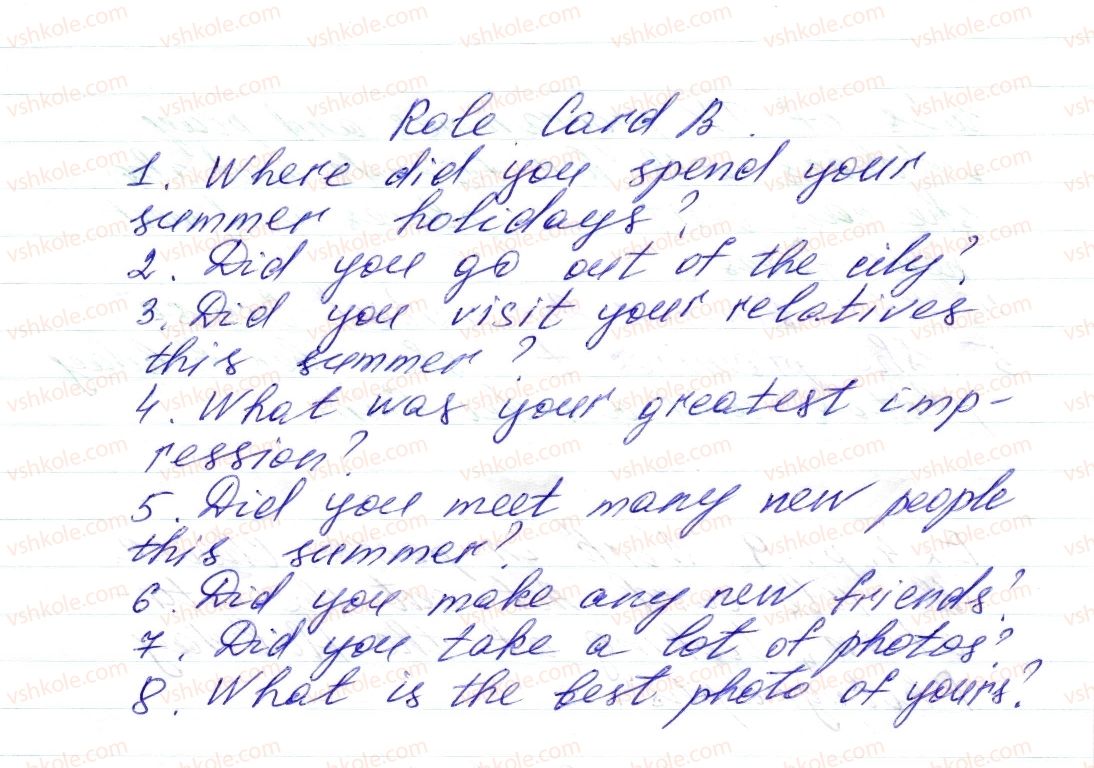 Role Card B.
1. Where did you spend your
summer holidays?
2. Did you go out of the city?
3. Did you visit your relatives
this summer?
4. What was your greatest imp-
ression?
5. Did you meet many new people
this summer?
6. Did you make any new friends?
7. Did you take a lot of photos?
8. What is the best photo of yours?
vshkole.com